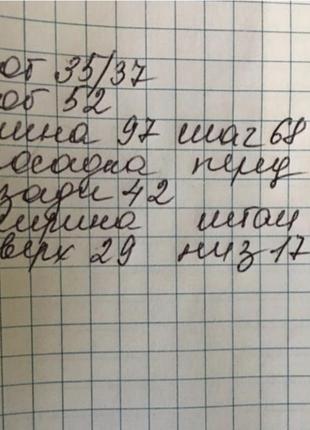 от 35/37
об 52
ина 97 шаг 68
осадка перед
зади 42
ирина штан
верх 29 низ 17